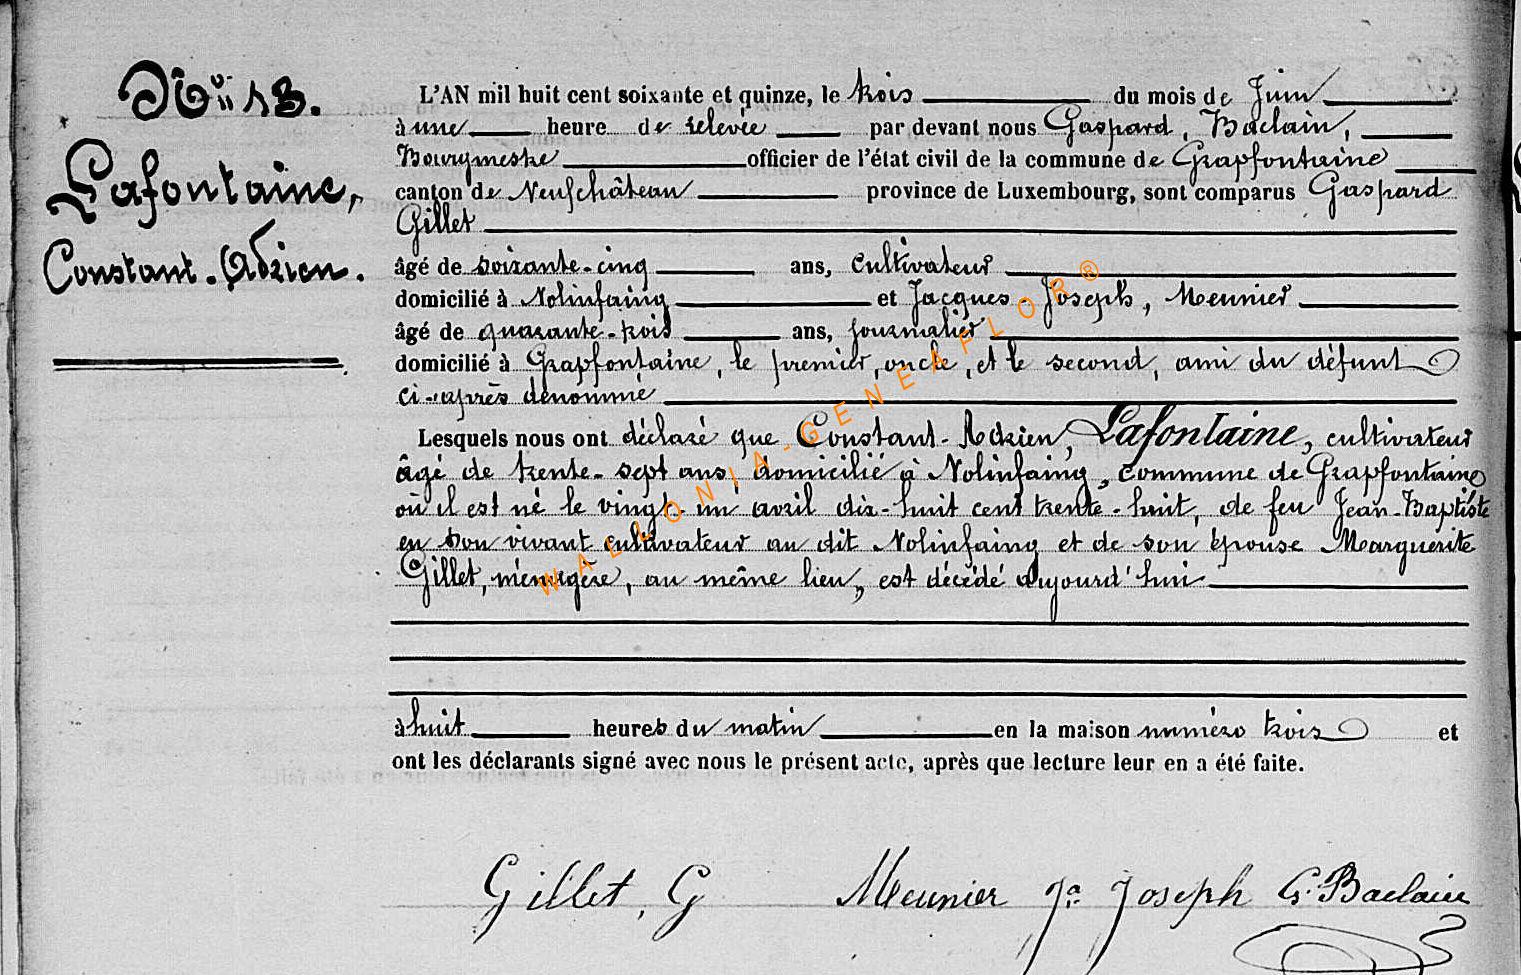 N° 13.
Lafontaine,
Constant-Adrien.
L'AN mil huit cent soixante et quinze, le trois du mois de Juin
à une heure de relevée par devant nous Gaspard, Baclain,
Bourgmestre officier de l'état civil de la commune de Grapfontaine
canton de Neufchâteau province de Luxembourg, sont comparus Gaspard
Gillet
âgé de soixante-cinq ans, cultivateur
domicilié à Nolinfaing et Jacques-Joseph, Meunier
âgé de quarante-trois ans, journalier
domicilié à Grapfontaine, le premier, oncle, et le second, ami du défunt
ci-après dénommé
Lesquels nous ont déclaré que Constant-Adrien, Lafontaine, cultivateur
âgé de trente-sept ans domicilié à Nolinfaing, commune de Grapfontaine
où il est né le vingt-un avril dix-huit cent trente-huit, de feu Jean-Baptiste
en son vivant cultivateur au dit Nolinfaing et de son épouse Marguerite
Gillet, ménagère, au même lieu, est décédé aujourd'hui
à huit heures du matin en la maison numéro trois et
ont les déclarants signé avec nous le présent acte, après que lecture leur en a été faite.
Gillet, G Meunier Ja Joseph G. Baclain
WALLONIA-GENEAFLOR®